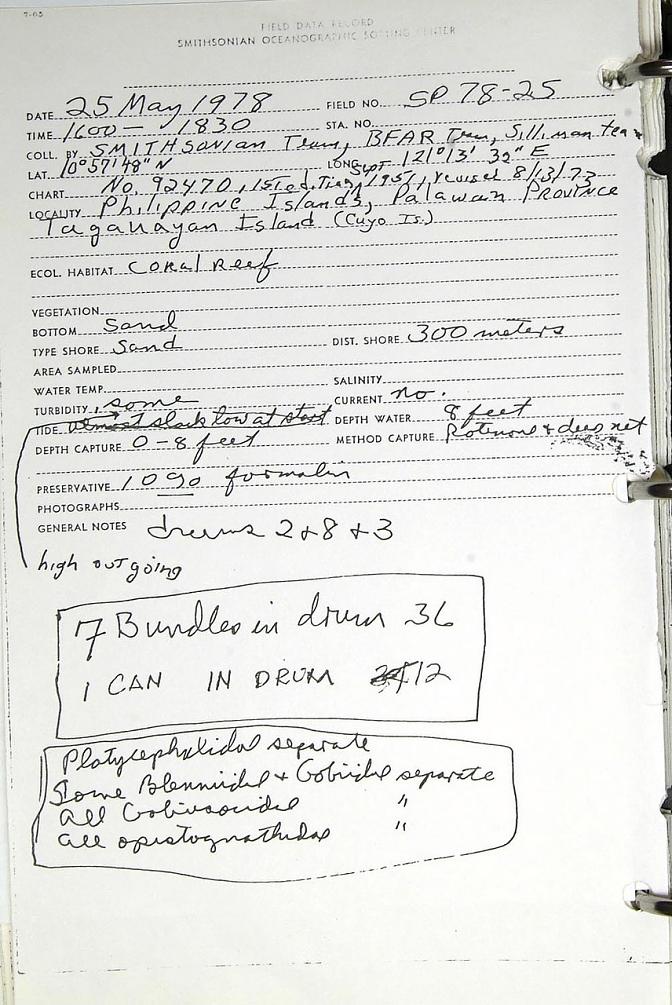 7-65
FIELD DATA RECORD
SMITHSONIAN OCEANOGRAPHIC SORTING CENTER
DATE 25 May 1978 FIELD NO. SP 78-25
TIME 1600 - 1830 STA. NO.
COLL. BY SMITHSONian Team, BFAR Team, Silliman team
LAT. 10°57'48" N LONG. 121°13' 32" E
CHART No. 92470, 1st ed., Sept 1951, revised 8/13/73
LOCALITY Philippine Islands, Palawan PROVINCE
Tagauayan Island (Cuyo Is.)
ECOL. HABITAT Coral Reef
VEGETATION
BOTTOM Sand
TYPE SHORE Sand DIST. SHORE 300 meters
AREA SAMPLED
WATER TEMP. SALINITY
TURBIDITY some CURRENT no.
TIDE almost slack low at start DEPTH WATER 8 feet
DEPTH CAPTURE 0-8 feet METHOD CAPTURE Rotenone + dip net
PRESERVATIVE 10% formalin
PHOTOGRAPHS
GENERAL NOTES drums 2+8+3
high outgoing
7 Bundles in drum 36
1 CAN IN DRUM 12
Platycephalidae separate
Some Blenniidae + Gobiidae separate
All Gobiesocidae "
all opistognathidae "